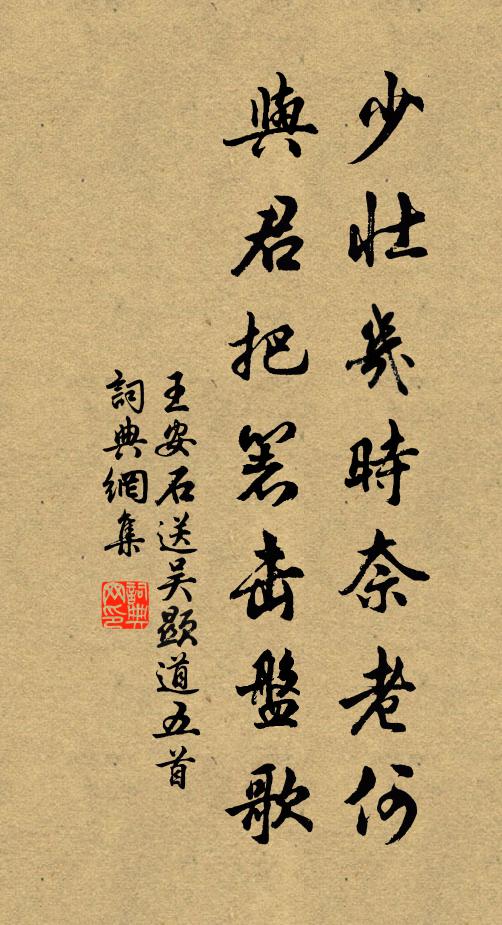 少壯幾時奈老何
與君把箸击盤歌
王安石送吴顯道五首
詞典網集
詞典网印